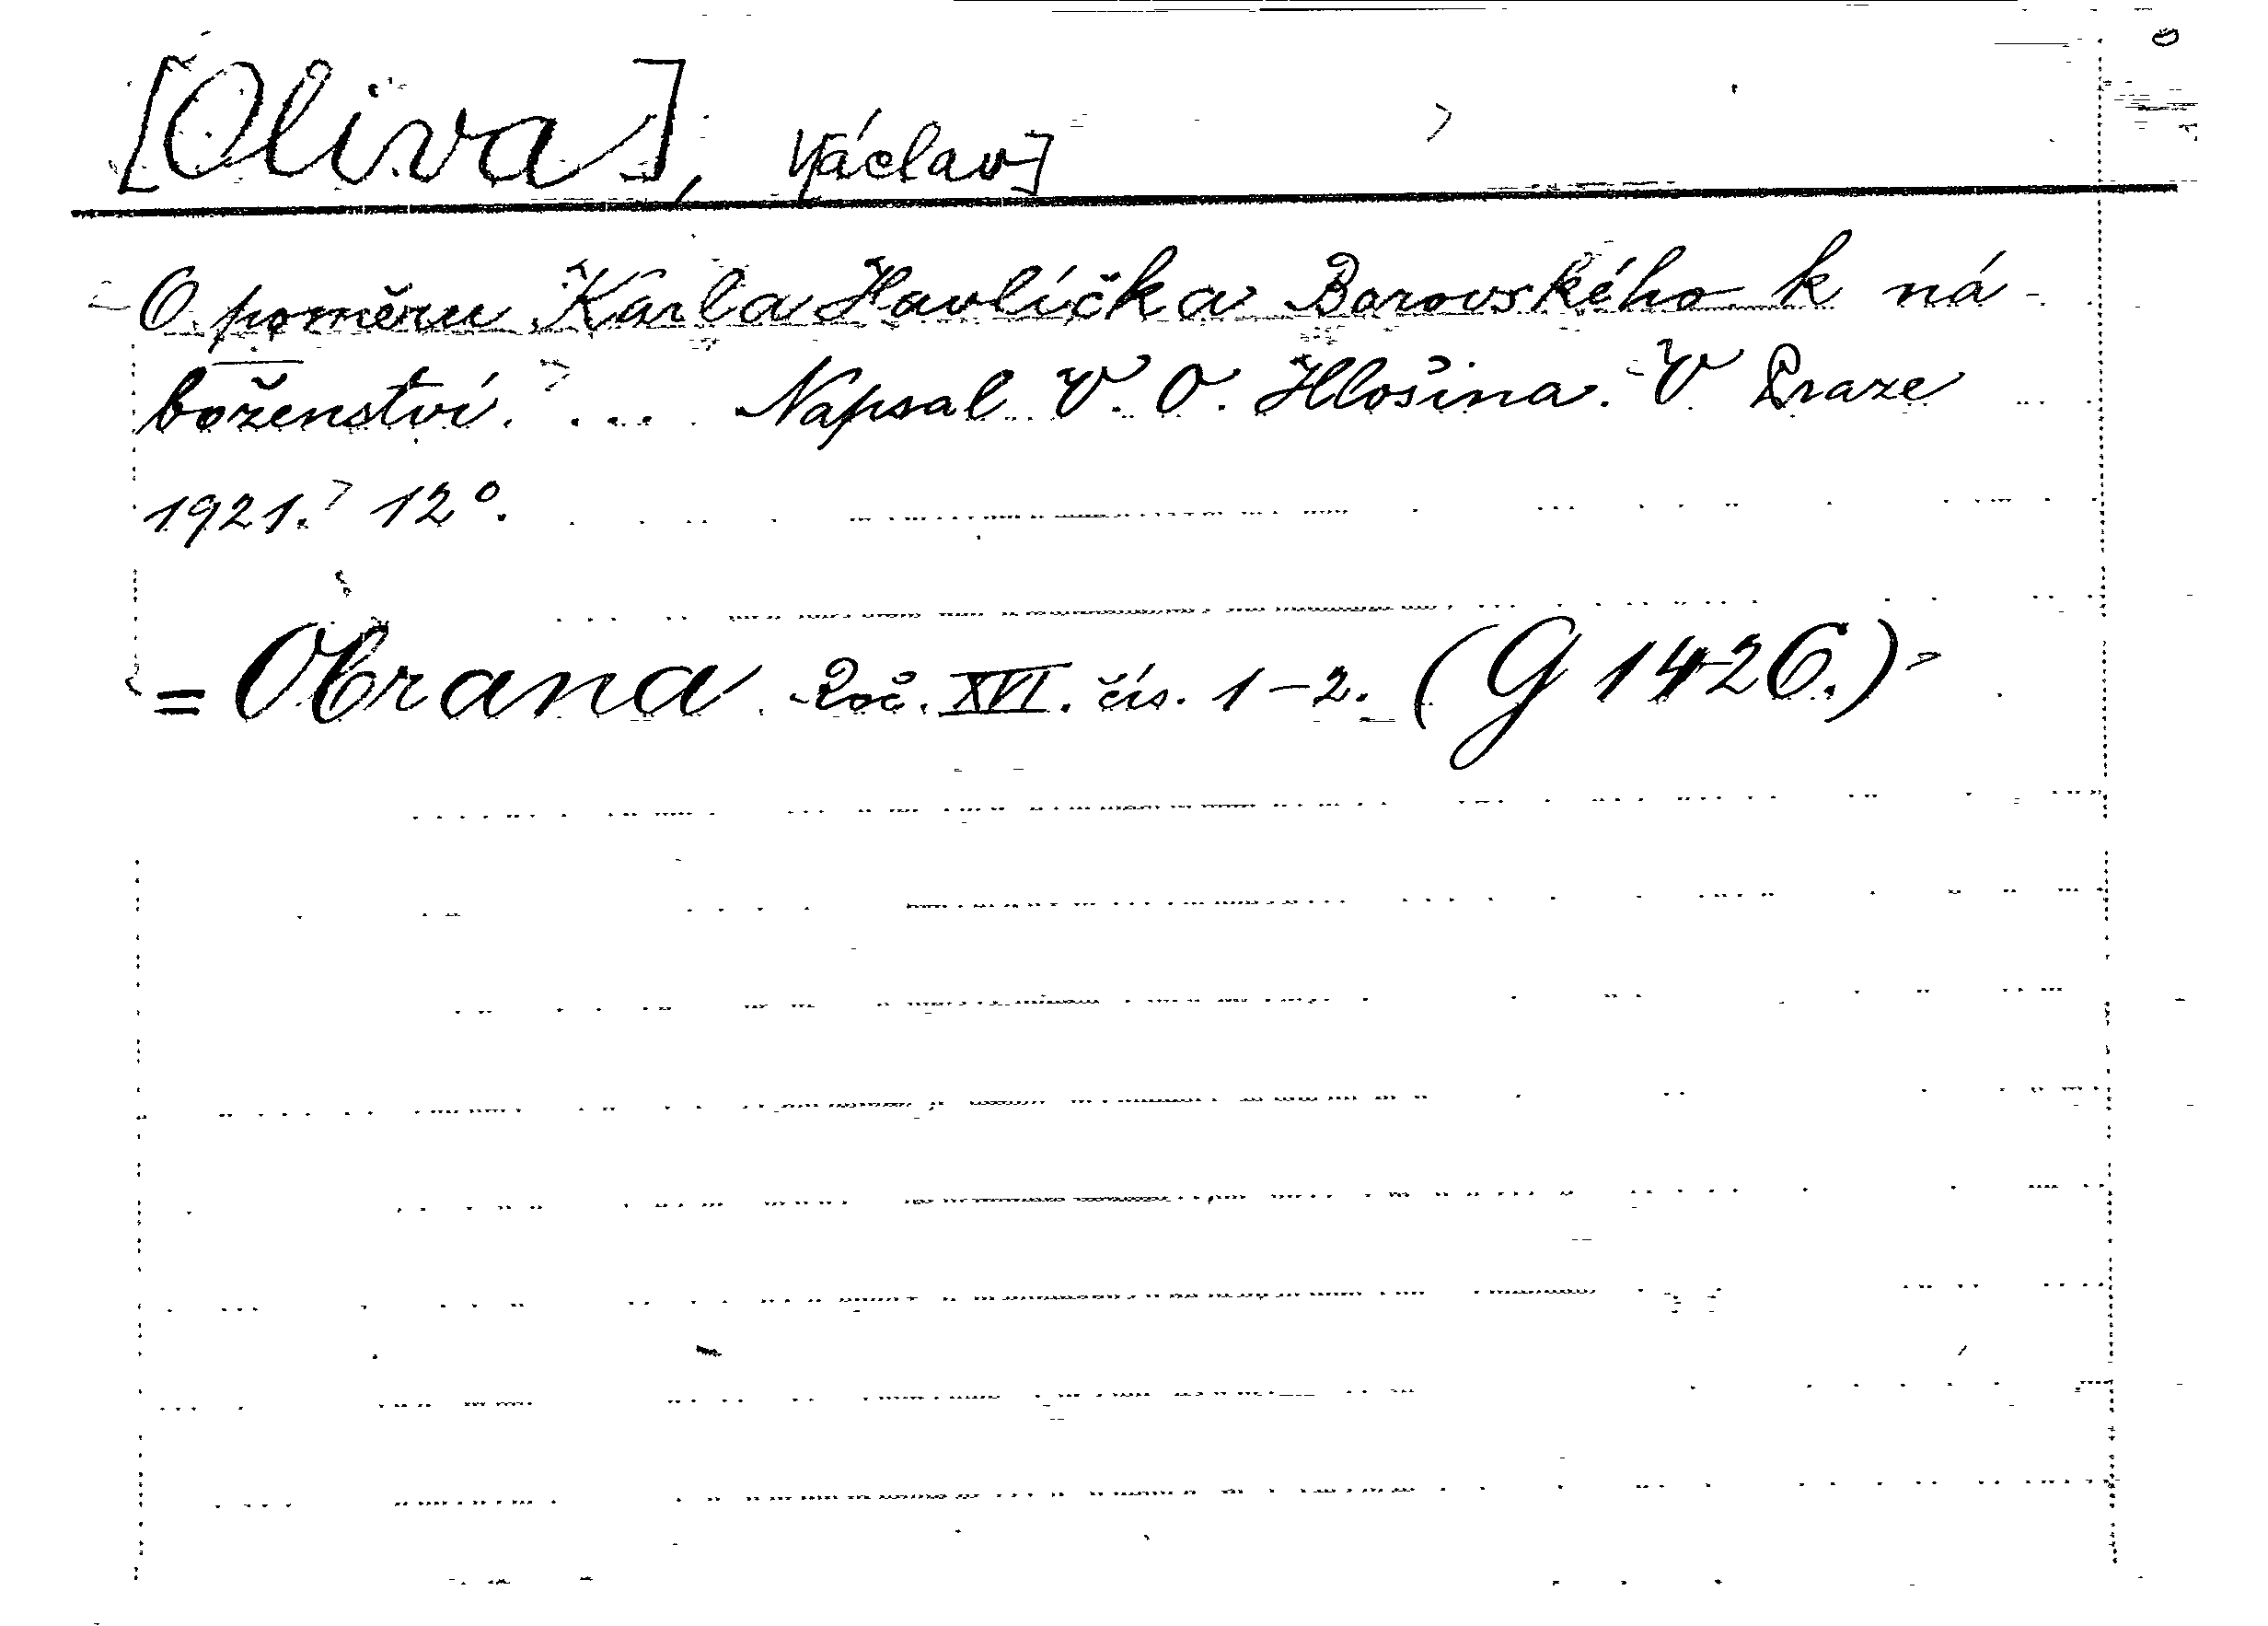 [Oliva], V[áclav]
O poměru Karla Havlíčka Borovského k ná-
boženství. ... Napsal V. O. Hlošina. V Praze
1921. 12°.
= Obrana. Roč. XVI. čís. 1-2. (G 1426.)